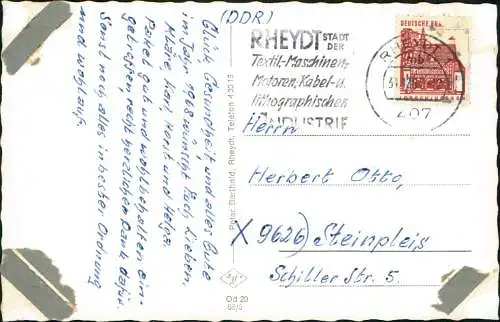 (DDR)
Glück, Gesundheit und alles Gute
im Jahr 1968 wünscht Euch Lieben
Kläre, Karl, Horst und Helga.
Paket gut und wohlbehalten ein-
getroffen, recht herzlichen Dank dafür.
Sonst noch alles in bester Ordnung
und wohlauf.
Peter Barthold, Rheydt, Telefon 43013
RHEYDT STADT
DER
Textil-Maschinen-
Motoren, Kabel- u.
lithographischen
INDUSTRIE
DEUTSCHE BUN
RHEYDT
407
Herrn
Herbert Otto,
X 9626) Steinpleis
Schiller Str. 5.
Od 20